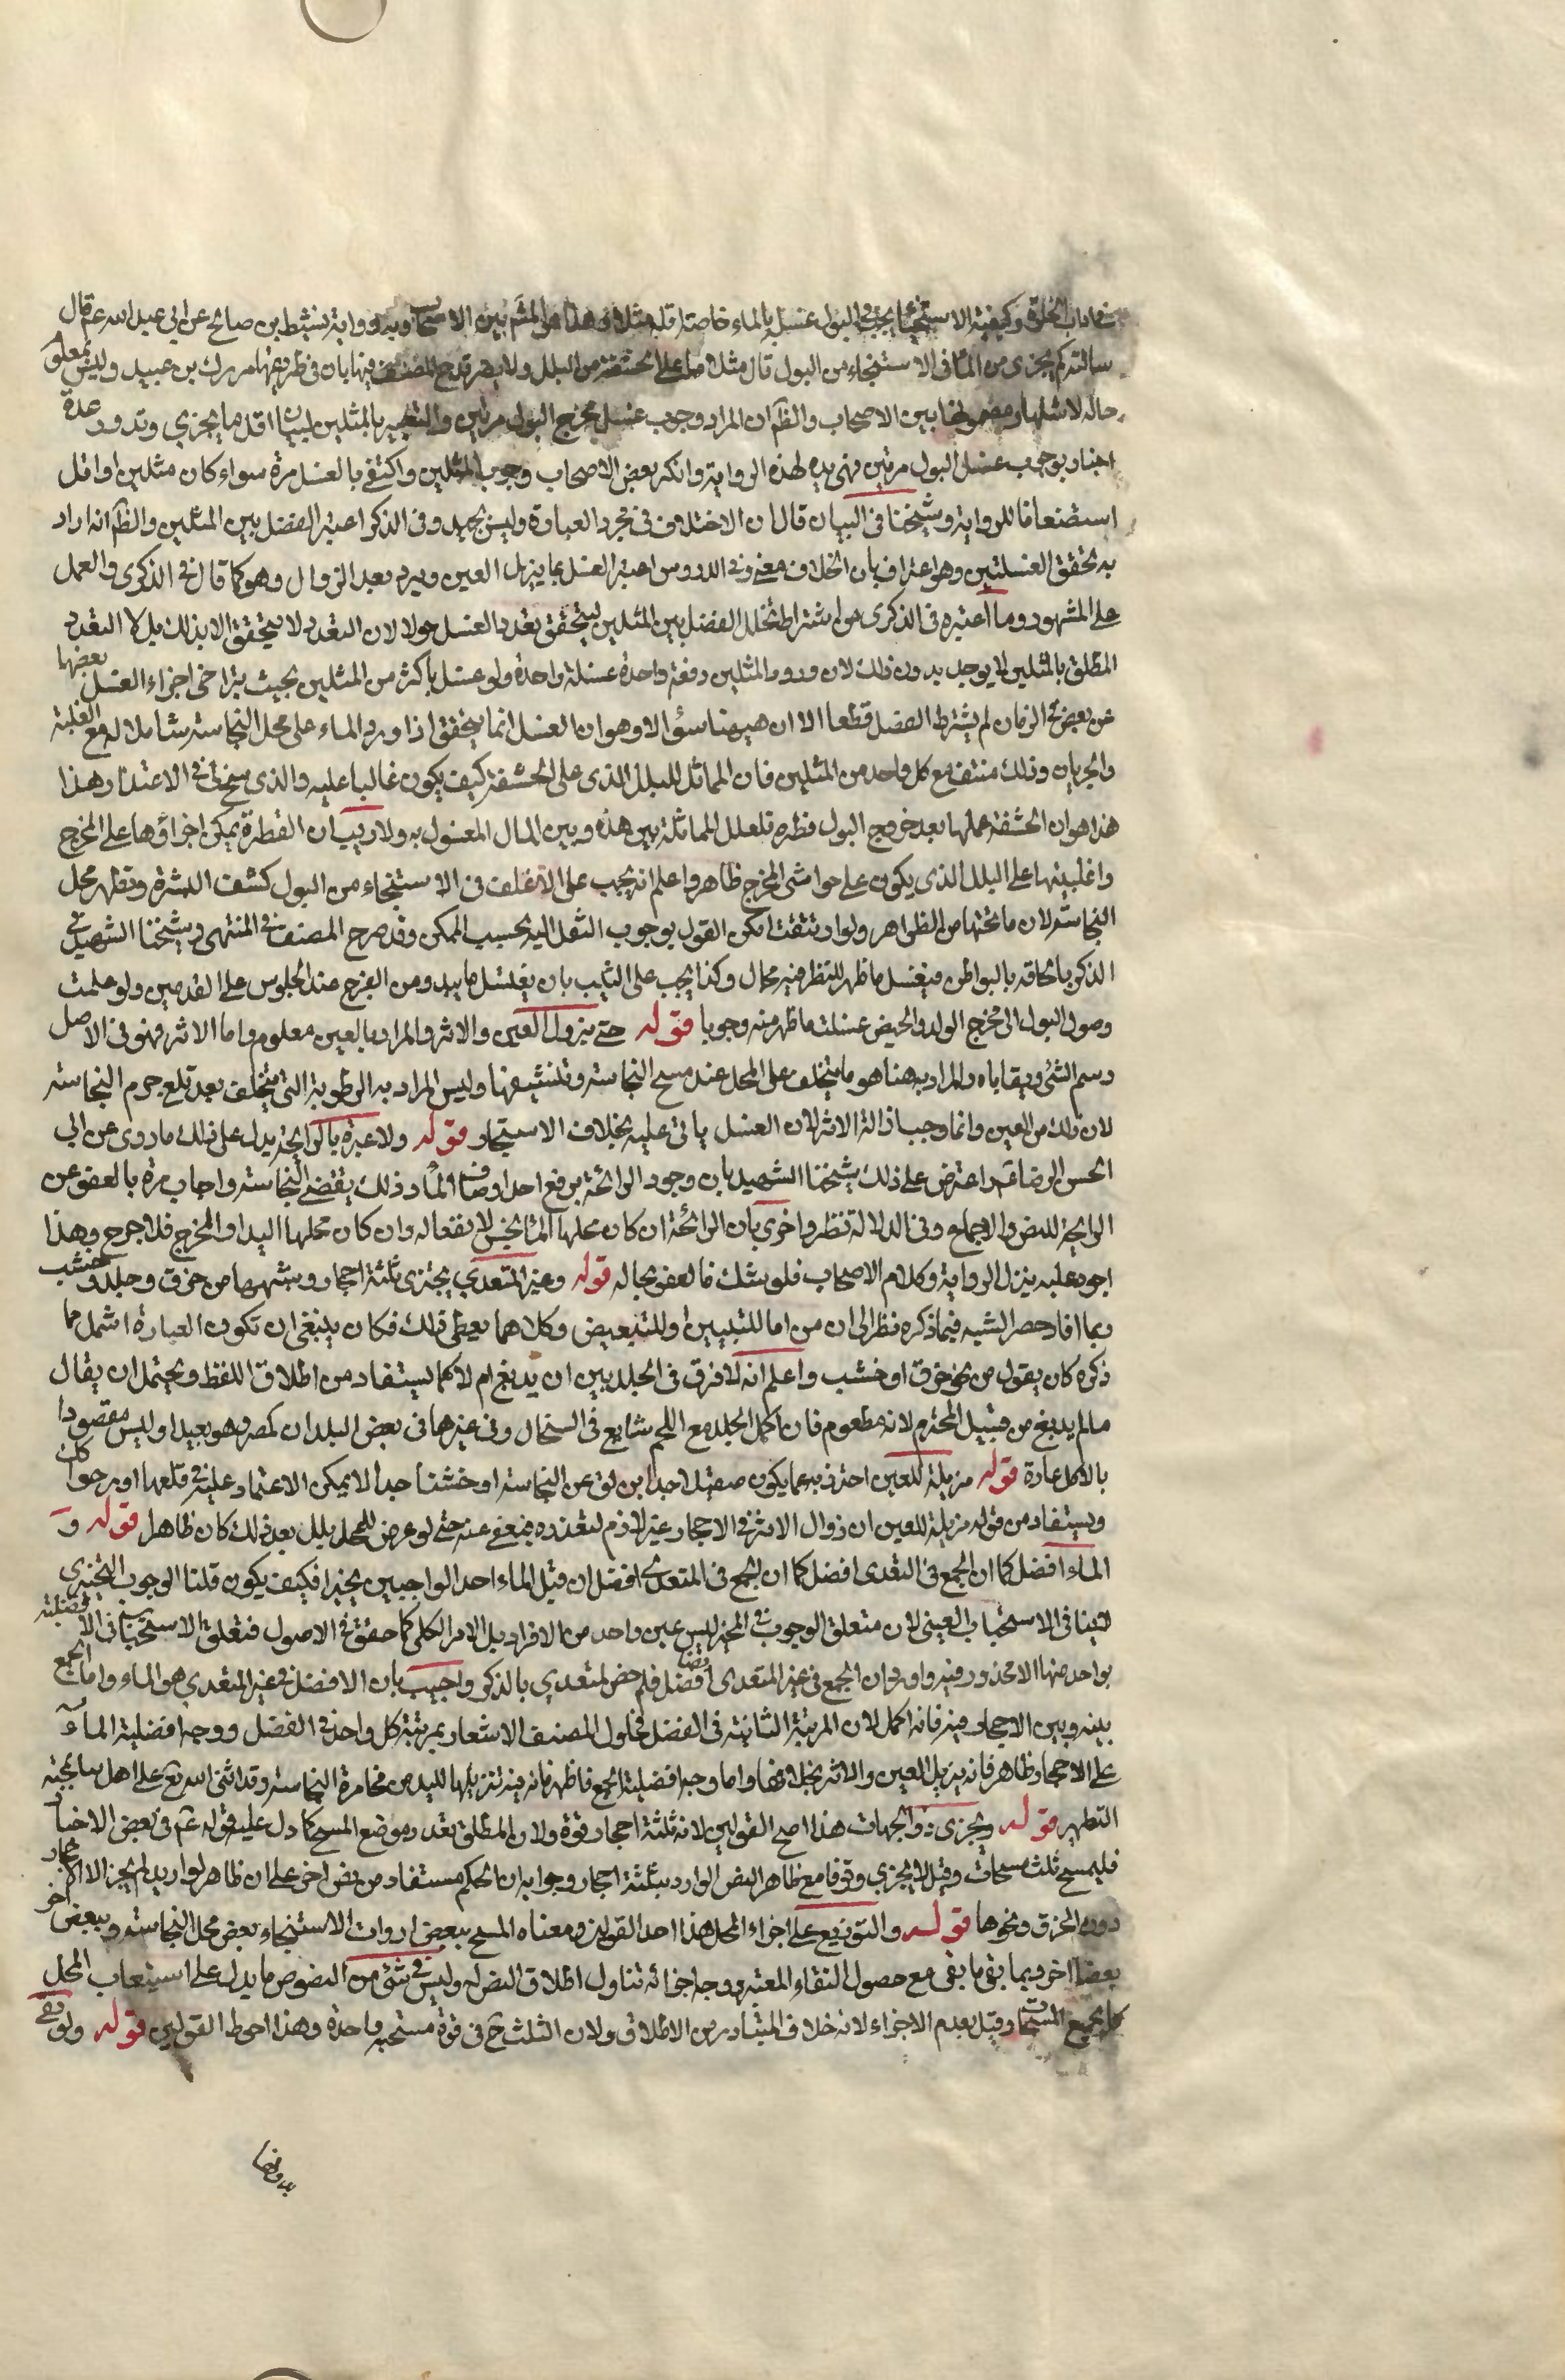 في اداب الخلوة وكيفية الاستنجاء يجب في البول غسله بالماء خاصة اقله مثلاه هذا هو المشهور بين الاصحاب وبه رواية نشيط بن صالح عن ابي عبد الله ع قال
سالته كم يجزى من الماء في الاستنجاء من البول قال مثلا ما على الحشفة من البلل ولا يضر قدح المصنف فيها بان في طريقها مروك بن عبيد وليس معلوم
حاله لاشتهار مضمونها بين الاصحاب والظ ان المراد وجوب غسل مخرج البول مرتين والتعبير بالمثلين لبيان اقل ما يجزي وقد ورد عدة
اخبار بوجوب غسل البول مرتين فهي مؤيده لهذه الرواية وانكر بعض الاصحاب وجوب المثلين واكتفى بالغسل مرة سواء كان مثلين او اقل
استضعافا للرواية وشيخنا في البيان قال ان الاختلاف في مجرد العبارة وليس بجيد وفي الذكرى اعتبر الفصل بين المثلين والظ انه اراد
به تحقق الغسلتين وهو اعتراف بان الخلاف معنوي وفي الدروس اعتبر الغسل بما يزيل العين ويرد بعد الزوال وهو كما قال في الذكرى والعمل
على المشهور وما اعتبره في الذكرى من اشتراط تخلل الفصل بين المثلين ليتحقق تعدد الغسل هو لا لان التعدد لا يتحقق الا بذلك بل لان التعدد
المطلق بالمثلين لا يوجد بدون ذلك لان ورود المثلين دفعة واحدة غسلة واحدة ولو غسل باكثر من المثلين بحيث يتراخى اجزاء الغسل بعضها
عن بعض في الزمان لم يشترط الفصل قطعا الا ان هيهنا سؤالا وهو ان الغسل انما يتحقق اذا ورد الماء على محل النجاسة شاملا له مع الغلبة
والجريان وذلك منتف مع كل واحد من المثلين فان المماثل للبلل الذي على الحشفة كيف يكون غالبا عليه والذي سنح لي في الاعتذار هذا
هذا هو ان الحشفة محلها بعد خروج البول قطرة فلعل المماثلة بين هذه وبين الماء المغسول به ولا ريب ان القطرة يمكن اجراؤها على المخرج
واغلبيتها على البلل الذي يكون على حواشي المخرج ظاهر واعلم انه يجب على الاغلف في الاستنجاء من البول كشف البشرة وتطهر محل
النجاسة لان ما تحتها من الظواهر ولو ارتتقت امكن القول بوجوب النقل اليه بحسب الممكن وقد صرح المصنف في المنتهى وشيخنا الشهيد في
الذكرى بالحاقه بالبواطن فيغسل ما ظهر للنظر فيه مجال وكذا يجب على الثيب بان يغسل ما يبدو من الفرج عند الجلوس على القدمين ولو علمت
وصول البول الى مخرج الولد والحيض غسلت ما ظهر منه وجوبا قوله حتى يزول العين والاثر والمراد بالعين معلوم واما الاثر فهو في الاصل
رسم الشئ وبقاياه والمراد به هنا هو ما يتخلف على المحل عند مسح النجاسة وتنشيفها وليس المراد به الرطوبة التي يتخلف بعد قلع جرم النجاسة
لان ذلك من العين وانما وجب ازالة الاثر لان الغسل ياتي عليه بخلاف الاستجمار قوله ولا عبرة بالرائحة يدل على ذلك ما روى عن ابي
الحسن الرضا عم واعترض على ذلك شيخنا الشهيد بان وجود الرائحة يرفع احد اوصاف الماء وذلك يقتضي النجاسة واجاب مرة بالعفو عن
الرائحة للنص والاجماع وفي الدلالة نظر واخرى بان الرائحة ان كان محلها الماء نجس لانفعاله وان كان محلها اليد او المخرج فلا حرج وهذا
اجود عليه ينزل الرواية وكلام الاصحاب فلو شك فالعفو بحاله قوله وغير المتعدي يجتزى بثلثة احجار وشبهها من خرق وجلد وخشب
ربما افاد حصر الشبه فيما ذكره نظرا الى ان من اما للتبيين او للتبعيض وكلاهما يعطي ذلك فكان ينبغي ان تكون العبارة اشمل مما
ذكره كان يقول من نحو خرق او خشب واعلم انه لا فرق في الجلد بين ان يدبغ ام لا كما يستفاد من اطلاق اللفظ ويحتمل ان يقال
مالم يدبغ من قبيل المحترم لانه مطعوم فان اكل الجلد مع اللحم شايع في السخال وفي غيرها في بعض البلدان كمصر وهو بعيد اذ ليس مقصودا
بالاكل عادة قوله مزيلة للعين احترز به عما يكون صقيلا جدا يزلق عن النجاسة او خشنا جدا لا يمكن الاعتماد عليه في قلعها او رخوا كك
ويستفاد من قوله مزيلة للعين ان زوال الاثر في الاحجار غير لازم لتعذره فيعفى عنه حتى لو عرض للمحل بلل بعد ذلك كان طاهرا قوله و
الماء افضل كما ان الجمع في التعدى افضل كما ان الجمع في المتعدى افضل ان قيل الماء احد الواجبين تخييرا فكيف يكون قلنا الوجوب التخييري
لا ينافي الاستحباب العيني لان متعلق الوجوب في المخير ليس عين واحد من الافراد بل الامر الكلي كما حقق في الاصول فتعلق الاستحباب في الافضلية
بواحد منها لا محذور فيه واورد ان الجمع في غير المتعدى ايضا افضل فلم خص المتعدي بالذكر واجيب بان الافضل في غير المتعدي هو الماء واما الجمع
بينه وبين الاحجار فيه فانه اكمل لان المرتبة الثانية في الفضل فحاول المصنف الاشعار بمرتبة كل واحد في الفضل ووجه افضلية الماء
على الاحجار ظاهر فانه يزيل العين والاثر بخلافها واما وجه افضلية الجمع فاظهر فانه فيه تنزيها لليد من مخامرة النجاسة وقد اثنى الله تع على اهل ... بمحبة
التطهير قوله ويجزى ذو الجهات هذا اصح القولين لانه ثلثة احجار قوة ولان المطلق تعدد موضع المسح كما دل عليه قوله عم في بعض الاخبار
فليمسح ثلث مسحات وقيل لا يجزي وقوفا مع ظاهر النص الوارد بثلثة احجار وجوابه ان الحكم مستفاد من نص اخر على ان ظاهره لو اريد لم يجز الا الاحجار
دون الخرق ونحوها قوله والتوزيع على اجزاء المحل هذا احد القولين ومعناه المسح ببعض ادوات الاستنجاء بعض محل النجاسة وببعض اخر
بعضا اخر وبما بقي ما بقي مع حصول النقاء المعتبر ووجه اجزائه تناول اطلاق النص له وليس في شئ من النصوص ما يدل على استيعاب المحل
كله بجميع المسحات وقيل بعدم الاجزاء لانه خلاف المتبادر من الاطلاق ولان الثلث ح في قوة مسحة واحدة وهذا احوط القولين قوله ولو بقى